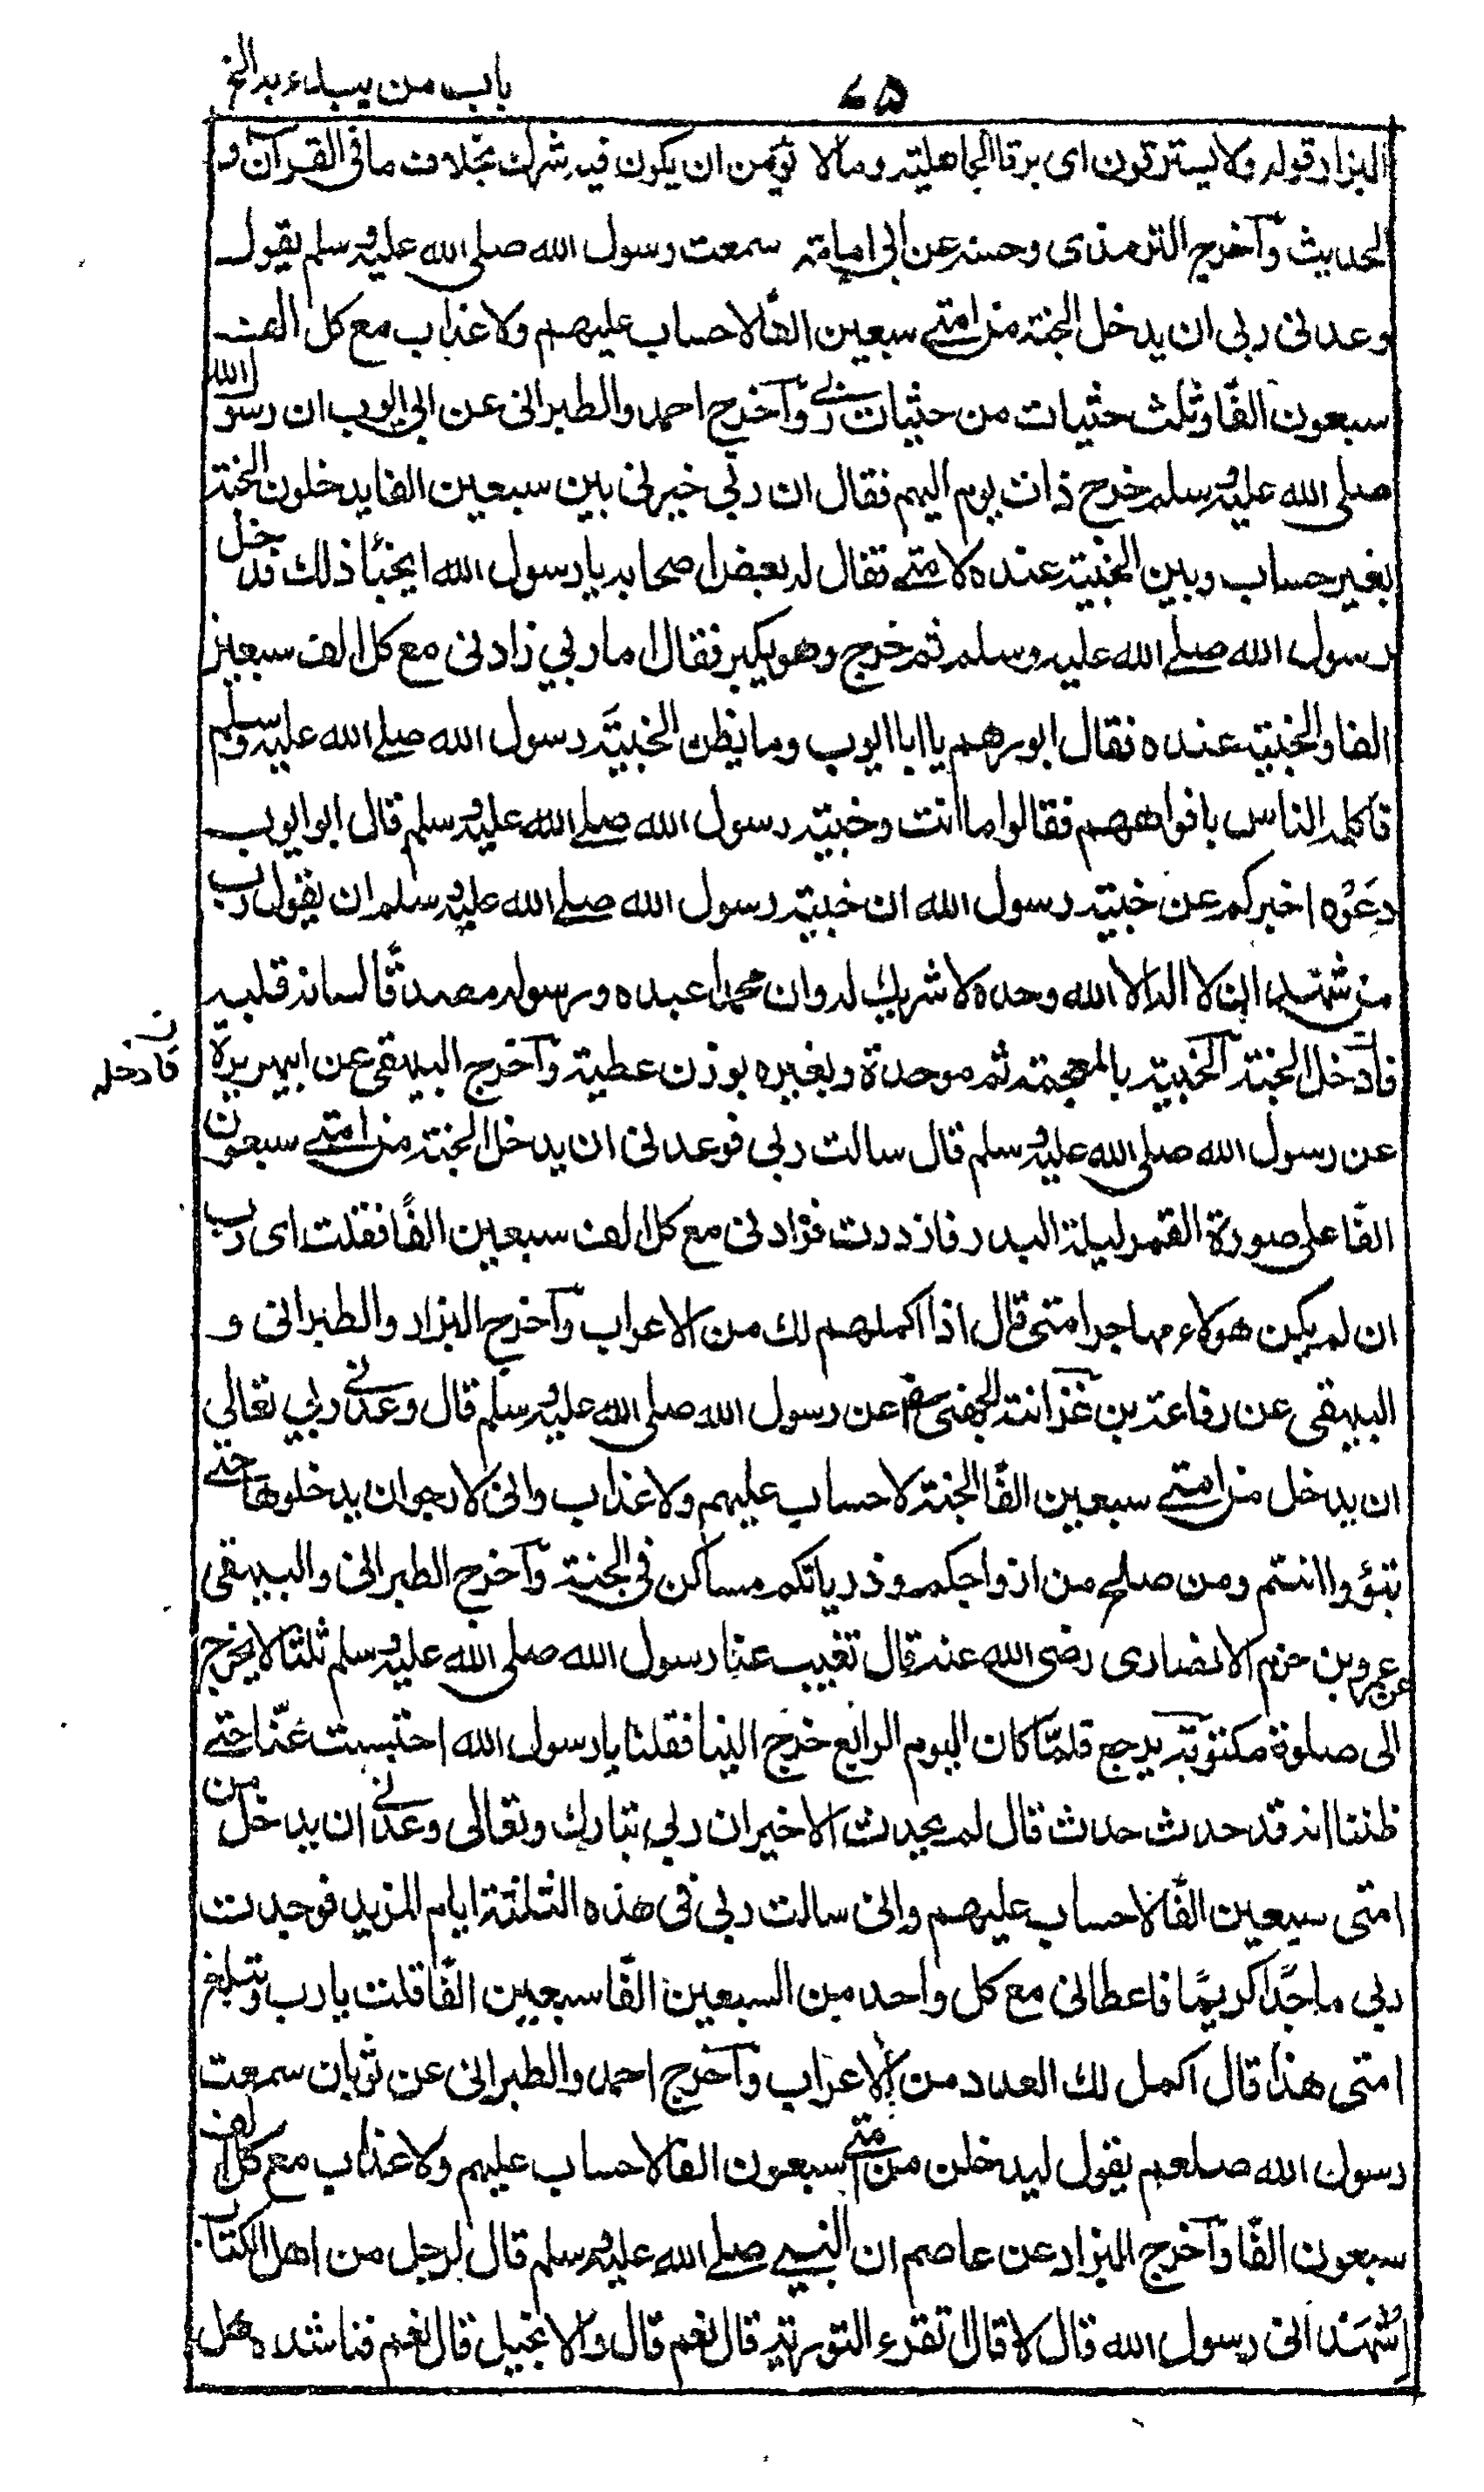 باب من يبدء بدالخ
٧٥
البزار قوله ولا يسترقون اى برقا الجاهلية وما لا يؤمن ان يكون فيه شرك بخلاف ما فى القرآن و
الحديث وآخرج الترمذى وحسنه عن ابى امامة سمعت رسول الله صلى الله عليه وسلم يقول
وعدنى ربى ان يدخل الجنة من امتى سبعين الفًا لا حساب عليهم ولا عذاب مع كل الف
سبعون الفًا وثلث حثيات من حثيات ربى وآخرج احمد والطبرانى عن ابى ايوب ان رسول الله
صلى الله عليه وسلم خرج ذات يوم اليهم فقال ان ربى خبرنى بين سبعين الفا يدخلون الجنة
بغير حساب وبين الخبية عنده لا متى فقال له بعض اصحابه يا رسول الله ايخبأ ذلك فدخل
رسول الله صلى الله عليه وسلم ثم خرج وهو يكبر فقال اما ربي زادنى مع كل الف سبعين
الفا والخبية عنده فقال ابو رهم يا ابا ايوب وما يظن الخبيّة رسول الله صلى الله عليه وسلم
فاكله الناس بافواههم فقالوا ما انت وخبية رسول الله صلى الله عليه وسلم قال ابو ايوب
دعوه اخبركم عن خبية رسول الله ان خبية رسول الله صلى الله عليه وسلم ان يقول رب
من شهد ان لا اله الا الله وحده لا شريك له وان محمدا عبده ورسوله مصدقًا لسانه قلبه
فادخل الجنة الخبية بالمعجمة ثم موحدة وبغيره بوزن عطية وآخرج البيهقى عن ابيهريرة
ن فادخله
عن رسول الله صلى الله عليه وسلم قال سالت ربى فوعدنى ان يدخل الجنة من امتى سبعون
الفًا على صورة القمر ليلة البدر فازددت فزادنى مع كل الف سبعين الفًا فقلت اى رب
ان لم يكن هولاء مهاجرا متى قال اذا اكملهم لك من الاعراب وآخرج البزار والطبرانى و
البيهقى عن رفاعة بن عرانة الجهنى عن رسول الله صلى الله عليه وسلم قال وعدنى ربي تعالى
ان يدخل من امتى سبعين الفًا الجنة لا حساب عليهم ولا عذاب وانى لارجوان يدخلوها حتى
تبؤوا انتم ومن صلح من ازواجكم وذرياتكم مساكن فى الجنة وآخرج الطبرانى والبيهقى
عن عمرو بن حزم الانصارى رضى الله عنه قال تغيب عنا رسول الله صلى الله عليه وسلم ثلثا لا يخرج
الى صلوة مكتوبة يرجع فلمّا كان اليوم الرابع خرج الينا فقلنا يا رسول الله احتبست عنّا حتى
ظننا انه قد حدث حدث قال لم يحدث الا خير ان ربى تبارك وتعالى وعدنى ان يدخل من
امتى سبعين الفًا لا حساب عليهم وانى سالت ربى فى هذه الثلثة ايام المزيد فوجدت
ربى ماجدًا كريمًا فاعطانى مع كل واحد من السبعين الفًا سبعين الفًا قلت يا رب وتبلغ
امتى هذا قال اكمل لك العدد من الاعراب وآخرج احمد والطبرانى عن ثوبان سمعت
رسول الله صلعم يقول ليدخلن من امتى سبعون الفا لا حساب عليهم ولا عذاب مع كل الف
سبعون الفًا وآخرج البزار عن عاصم ان النبى صلى الله عليه وسلم قال لرجل من اهل الكتاب
اشهد انى رسول الله قال لا قال تقرء التورية قال نعم قال والانجيل قال نعم فناشده هل